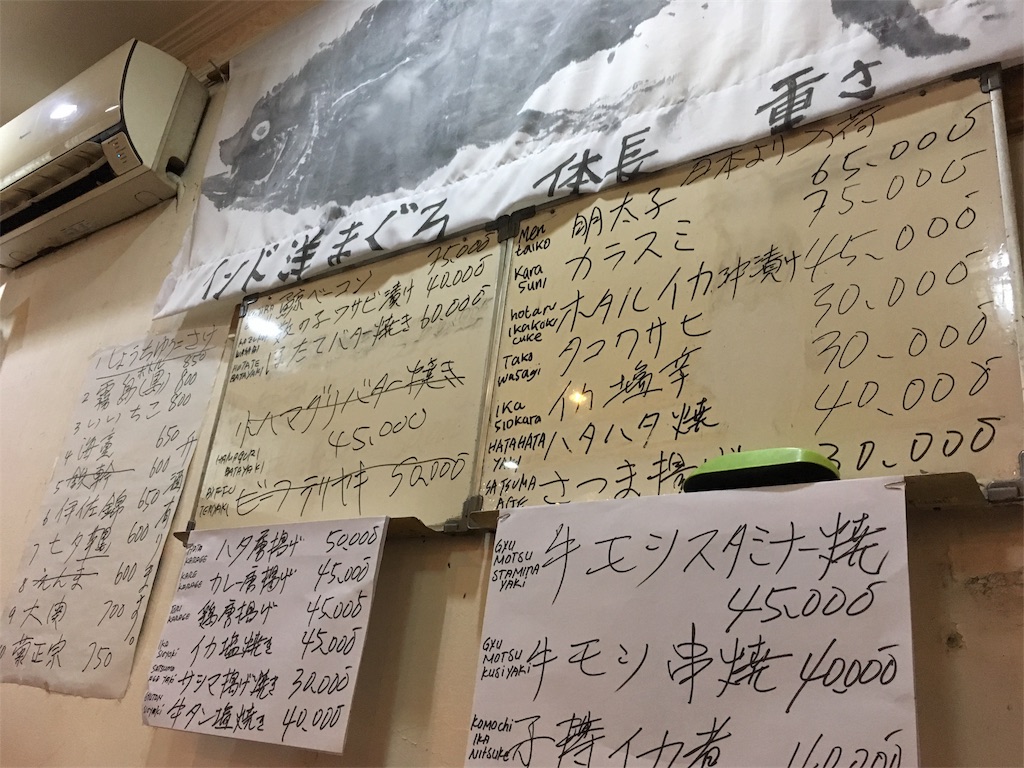 重さ
体長
インド洋まぐろ
35.000
ベーコン 40.000
ワサビ漬け 60.000
バター焼き
ハマグリバター焼き
45.000
BATAYAKI
ビーフテリヤキ 50.000
TERIYAKI
日本より入荷
Men taiko 明太子 65.000
Kara Suni カラスミ 75.000
hotaru ikakok cuke ホタルイカ沖漬け 45.000
Tako wasagi タコワサビ 30.000
IKa SIOKara イカ塩辛 30.000
HATAHATA YAKI ハタハタ焼 40.000
SATSUMA AGE さつま揚げ 30.000
850
2 霧島 800
3 いいちこ 800
4 海童 650
5 鉄幹 600
6 伊佐錦 650
7 七夕 600
8 600
9 700
菊正宗 750
KARAGE ハタ唐揚げ 50.000
KARE KARAGE カレー唐揚げ 45.000
KARAGE 鶏唐揚げ 45.000
Ika イカ塩焼き 45.000
サツマ揚げ焼き 30.000
牛タン塩焼き 40.000
GYU MOTSU STAMINA YAKI 牛モツスタミナー焼
45.000
GYU MOTSU KUSIYAKI 牛モツ串焼 40.000
KOMOCHI IKA NITSUKE 子持イカ煮